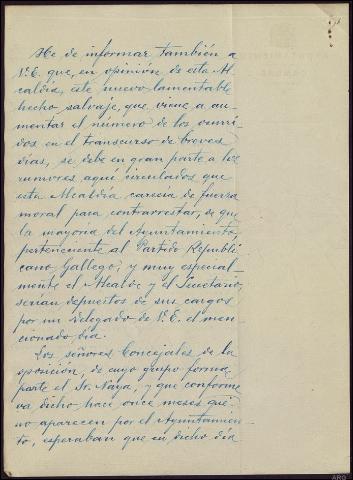 He de informar también a
V.E. que, en opinión de esta Al-
caldía, este nuevo lamentable
hecho salvaje, que viene a au-
mentar el número de los ocurri-
dos en el transcurso de breves
días, se debe en gran parte a los
rumores aquí circulados que
esta Alcaldía carecía de fuerza
moral para contrarrestar, de que
la mayoría del Ayuntamiento,
perteneciente al Partido Republi-
cano Gallego, y muy especial-
mente el Alcalde y el Secretario,
serían depuestos de sus cargos
por un Delegado de V.E. el men-
cionado día.
Los señores Concejales de la
oposición, de cuyo grupo forma
parte el Sr. Naya, y que conforme
va dicho hace once meses que
no aparecen por el Ayuntamien-
to, esperaban que en dicho día
ARQ